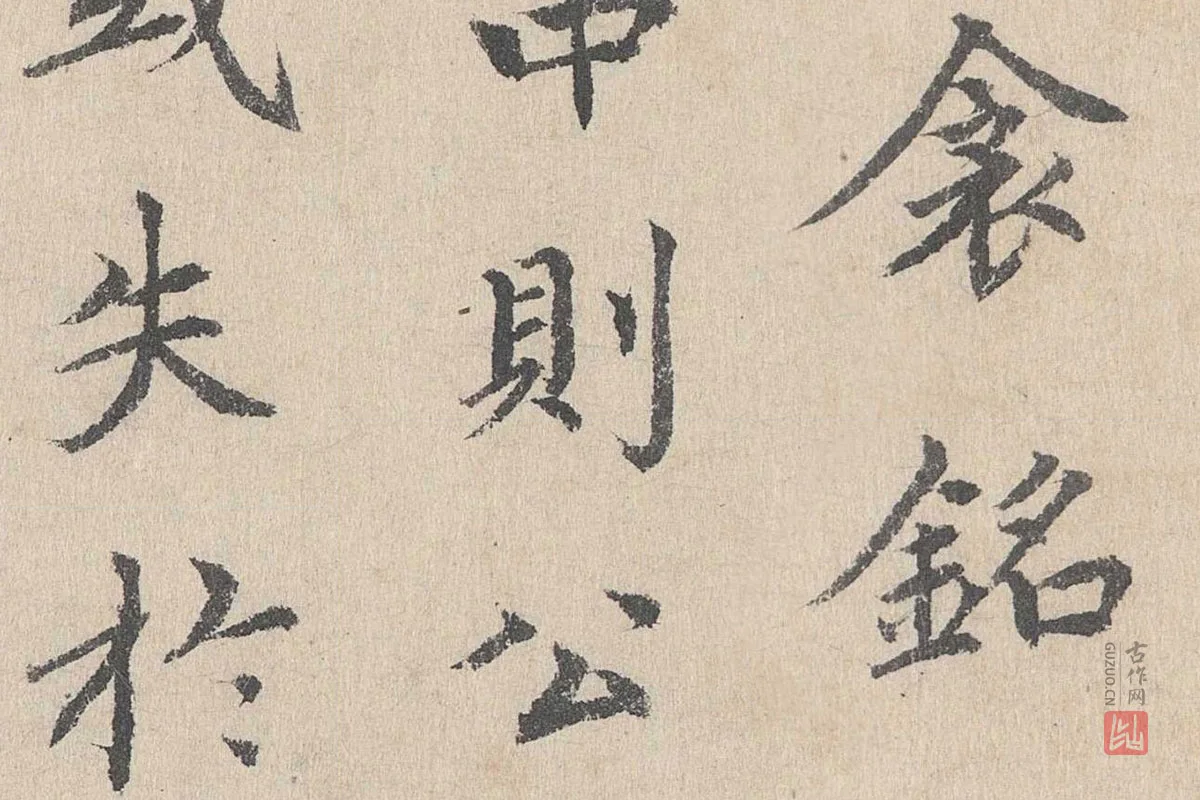 衾銘
則公
失於
古作网
GUZUO.CN